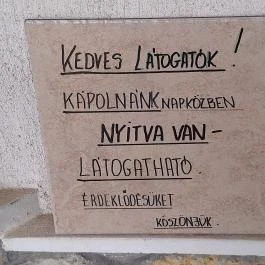 KEDVES LÁTOGATÓK!
KÁPOLNÁNK NAPKÖZBEN
NYITVA VAN -
LÁTOGATHATÓ.
ÉRDEKLŐDÉSÜKET
KÖSZÖNJÜK.